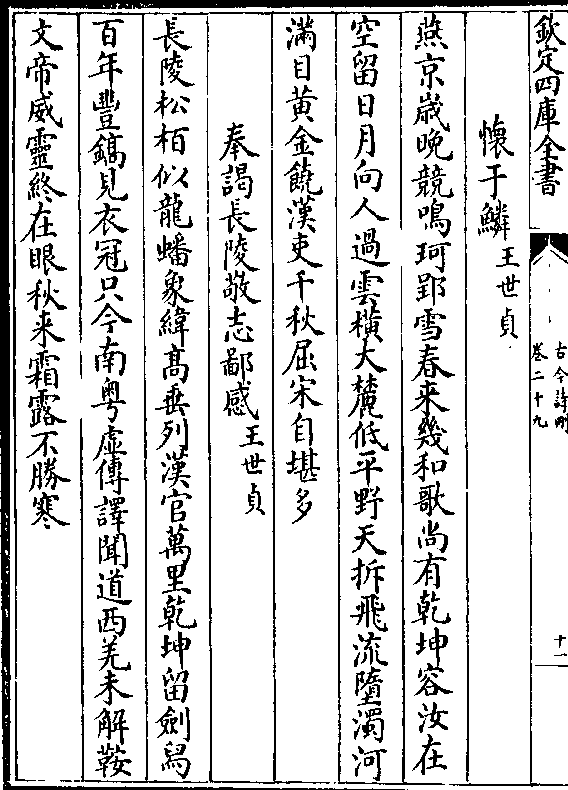 欽定四庫全書
古今詩刪
卷二十九
十一
懷于鱗 王世貞
燕京歲晚競鳴珂郢雪春来幾和歌尚有乾坤容汝在
空留日月向人過雲橫大麓低平野天拆飛流墮濁河
滿目黄金饒漢吏千秋屈宋自堪多
奉謁長陵敬志鄙感 王世貞
長陵松栢似龍蟠象緯髙垂列漢官萬里乾坤留劍舄
百年豐鎬見衣冠只今南粤虚傳譯聞道西羌未解鞍
文帝威靈終在眼秋来霜露不勝寒